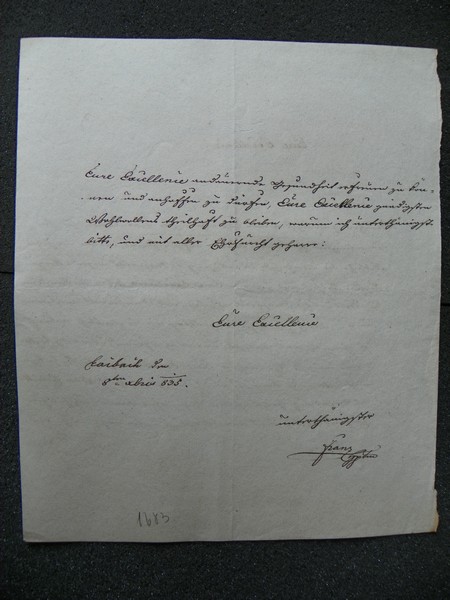 Eure Excellenz andauernde Gesundheit erfreuen zu kön-
nen und anhoffen zu dürfen, Eure Excellenz gnädigsten
Wohlwollens theilhaft zu bleiben, warum ich unterthänigst
bitte, und mit aller Ehrfurcht geharre:
Eure Excellenz
Laibach den
8ten 835.
unterthänigster
Franz
1683